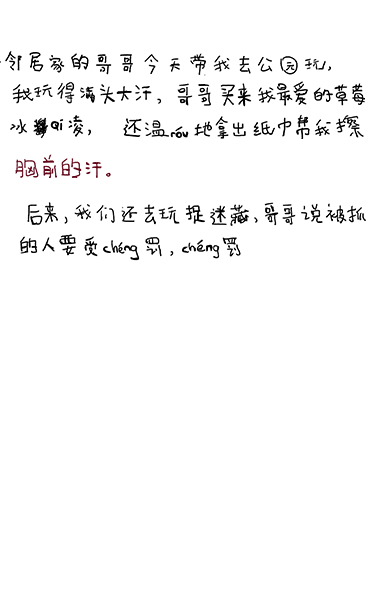 邻居家的哥哥今天带我去公园玩,
我玩得满头大汗,哥哥买来我最爱的草莓
冰qi凌, 还温róu地拿出纸巾帮我擦
胸前的汗。
后来,我们还去玩捉迷藏,哥哥说被抓
的人要受chéng罚,chéng罚